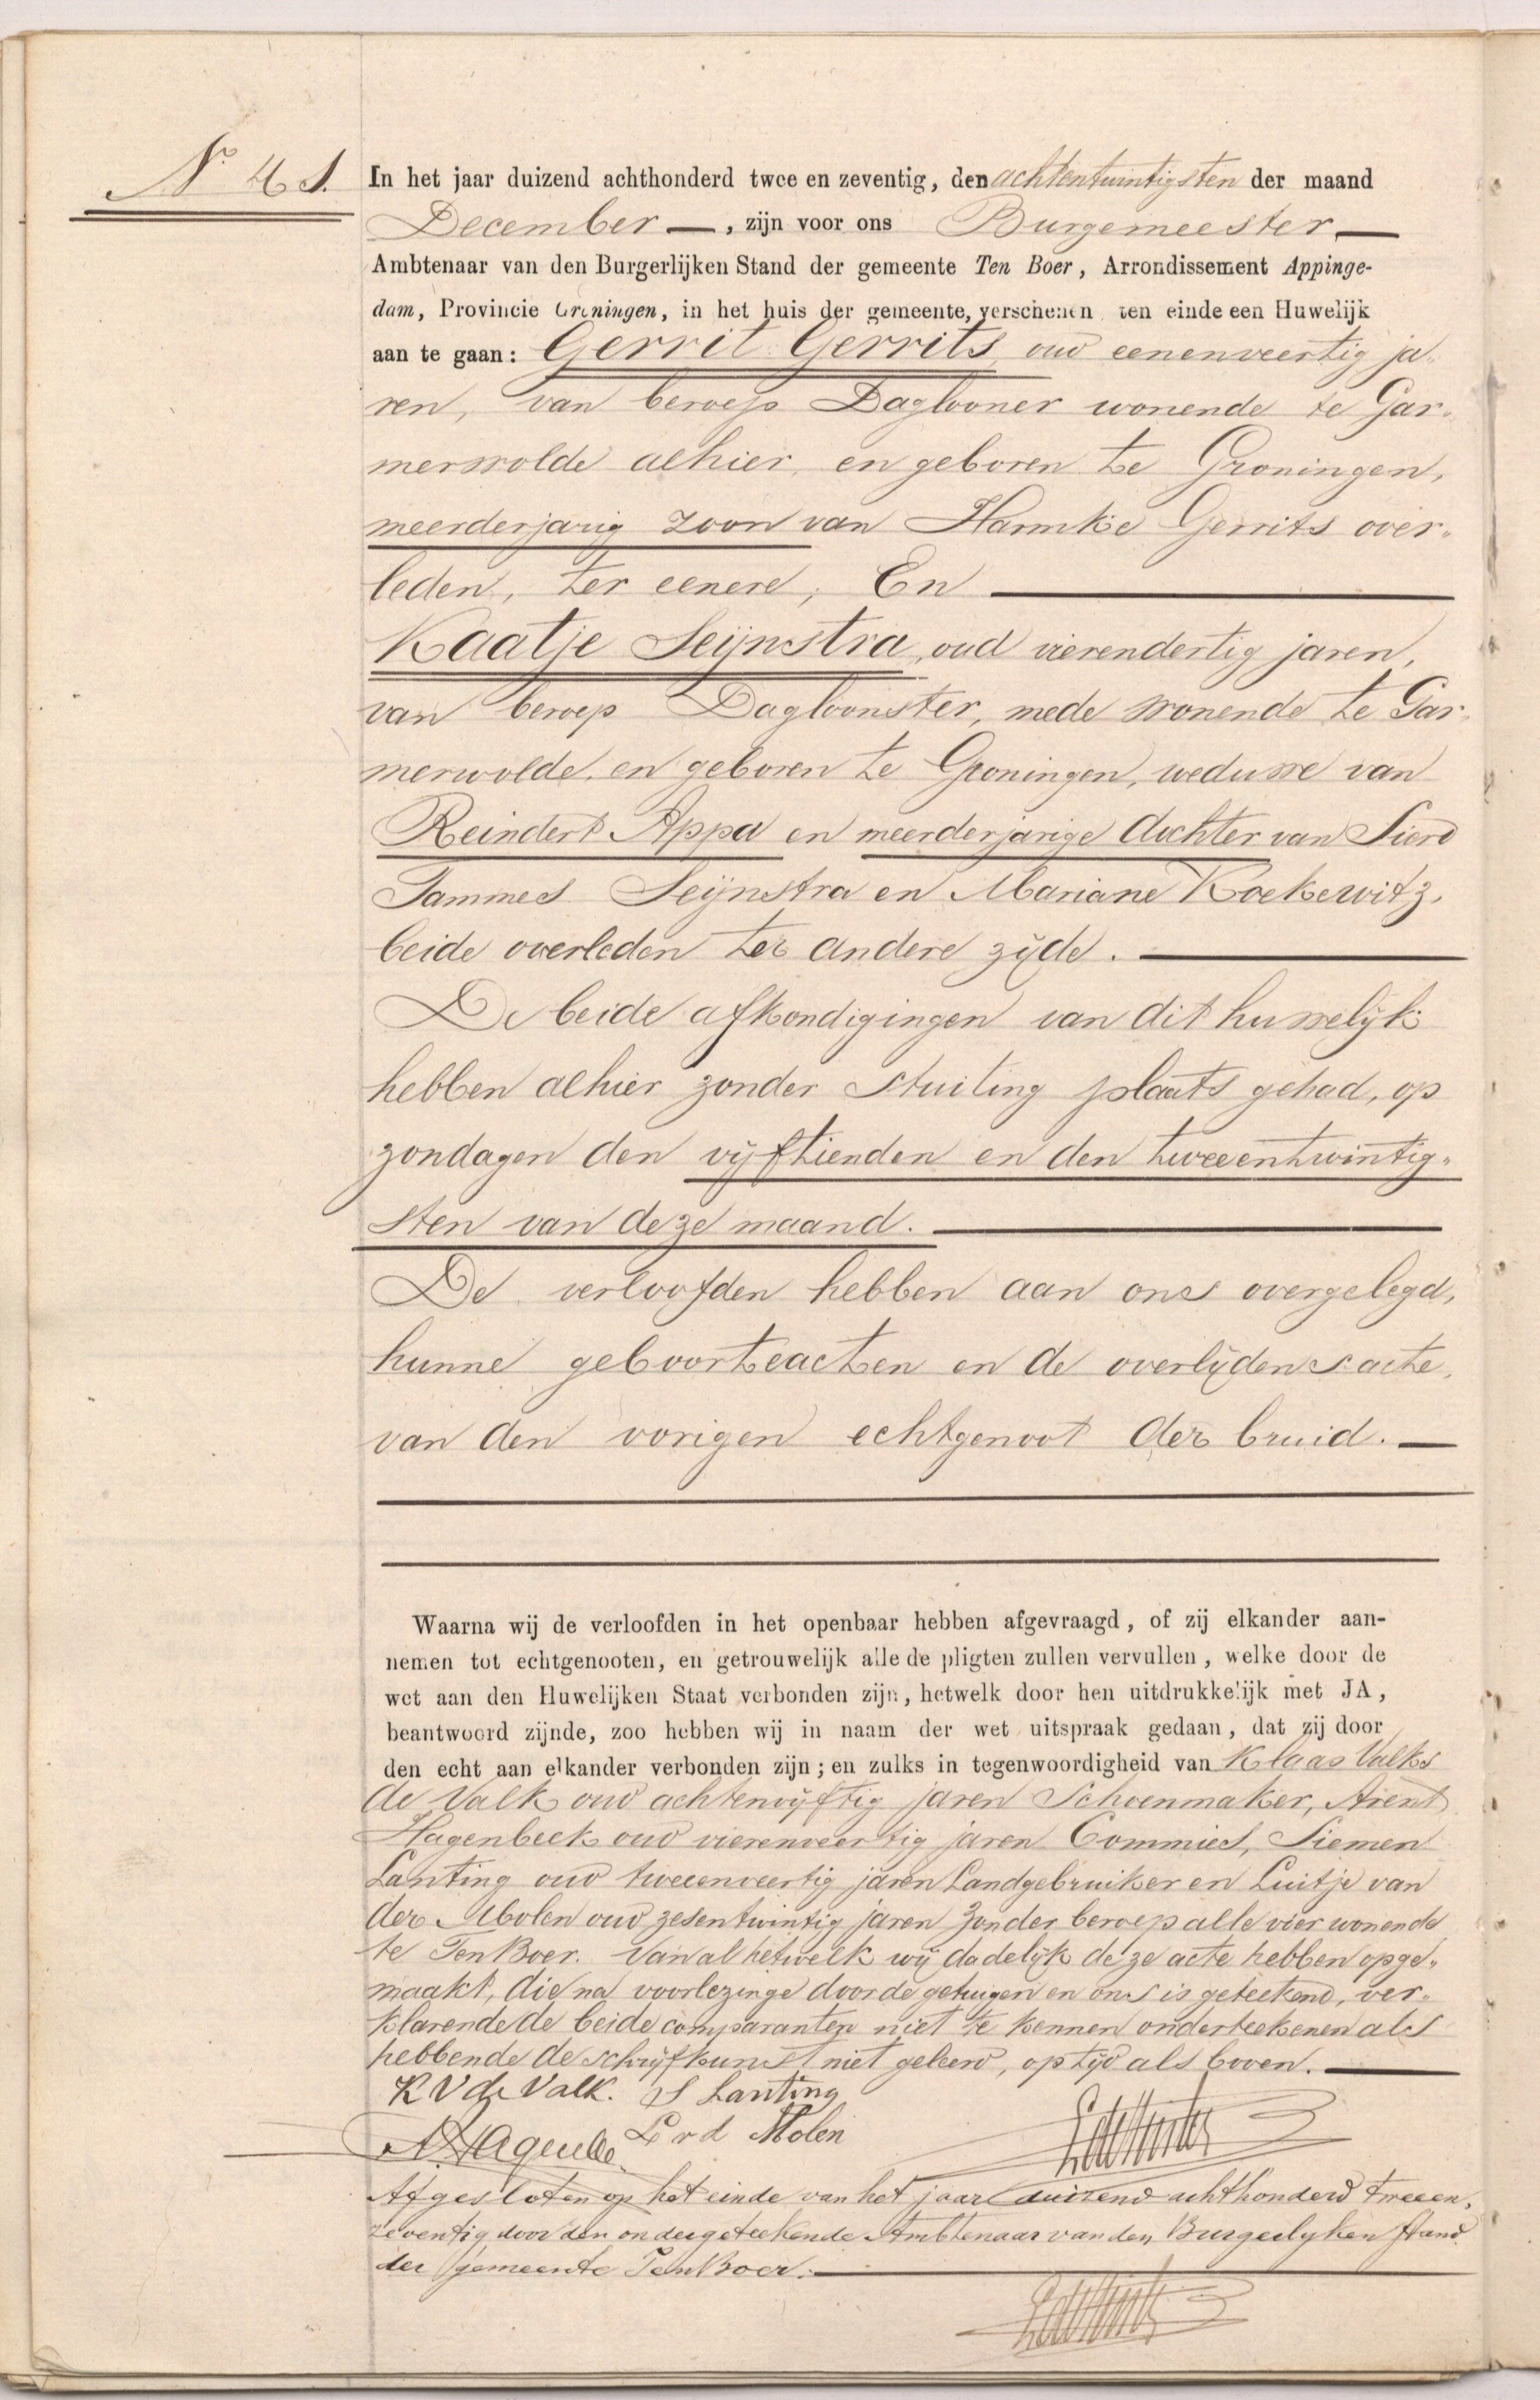 N° 41.
In het jaar duizend achthonderd twee en zeventig, den achtentwintigsten der maand
December —, zijn voor ons Burgemeester —
Ambtenaar van den Burgerlijken Stand der gemeente Ten Boer, Arrondissement Appinge-
dam, Provincie Groningen, in het huis der gemeente, verschenen ten einde een Huwelijk
aan te gaan: Gerrit Gerrits oud eenenveertig ja-
ren, van beroep Daglooner wonende te Gar-
merwolde alhier, en geboren te Groningen,
meerderjarig zoon van Harmke Gerrits over-
leden, ter eenere, En —
Kaatje Seijnstra, oud vierendertig jaren,
van beroep Dagloonster, mede wonende te Gar-
merwolde, en geboren te Groningen, weduwe van
Reindert Appa en meerderjarige dochter van Sierd
Tammes Seijnstra en Mariane Koekewitz,
beide overleden ter andere zijde. —
De beide afkondigingen van dit huwelijk
hebben alhier zonder stuiting plaats gehad, op
zondagen den vijftienden en den tweeentwintig-
sten van deze maand. —
De verloofden hebben aan ons overgelegd,
hunne geboorteacten en de overlijdensacte,
van den vorigen echtgenoot der bruid. —
Waarna wij de verloofden in het openbaar hebben afgevraagd, of zij elkander aan-
nemen tot echtgenooten, en getrouwelijk alle de pligten zullen vervullen, welke door de
wet aan den Huwelijken Staat verbonden zijn, hetwelk door hen uitdrukkelijk met JA,
beantwoord zijnde, zoo hebben wij in naam der wet uitspraak gedaan, dat zij door
den echt aan elkander verbonden zijn; en zulks in tegenwoordigheid van Klaas Valks
de Valk oud achtenvijftig jaren Schoenmaker, Arent
Hagenbeek oud vierenveertig jaren Commies, Siemen
Lanting oud tweeenveertig jaren Landgebruiker en Luitje van
der Molen oud zesentwintig jaren zonder beroep alle vier wonende
te Ten Boer. Van al hetwelk wij dadelijk deze acte hebben opge-
maakt, die na voorlezinge door de getuigen en ons is geteekend, ver-
klarende de beide comparanten niet te kennen onderteekenen als
hebbende de schrijfkunst niet geleerd, op tijd als boven. —
K V de Valk. S Lanting
L v d Molen
Afgesloten op het einde van het jaar duizend achthonderd tweeen-
zeventig door den ondergeteekende Ambtenaar van den Burgerlyken Stand
der gemeente Ten Boer. —